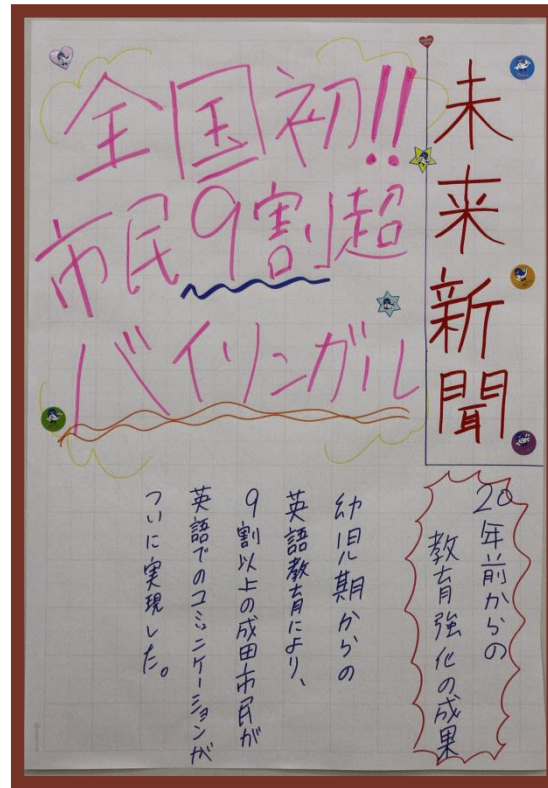 未来新聞
全国初!!
市民9割超
バイリンガル
20年前からの
教育強化の成果
幼児期からの
英語教育により、
9割以上の成田市民が
英語でのコミニケーションが
ついに実現した。